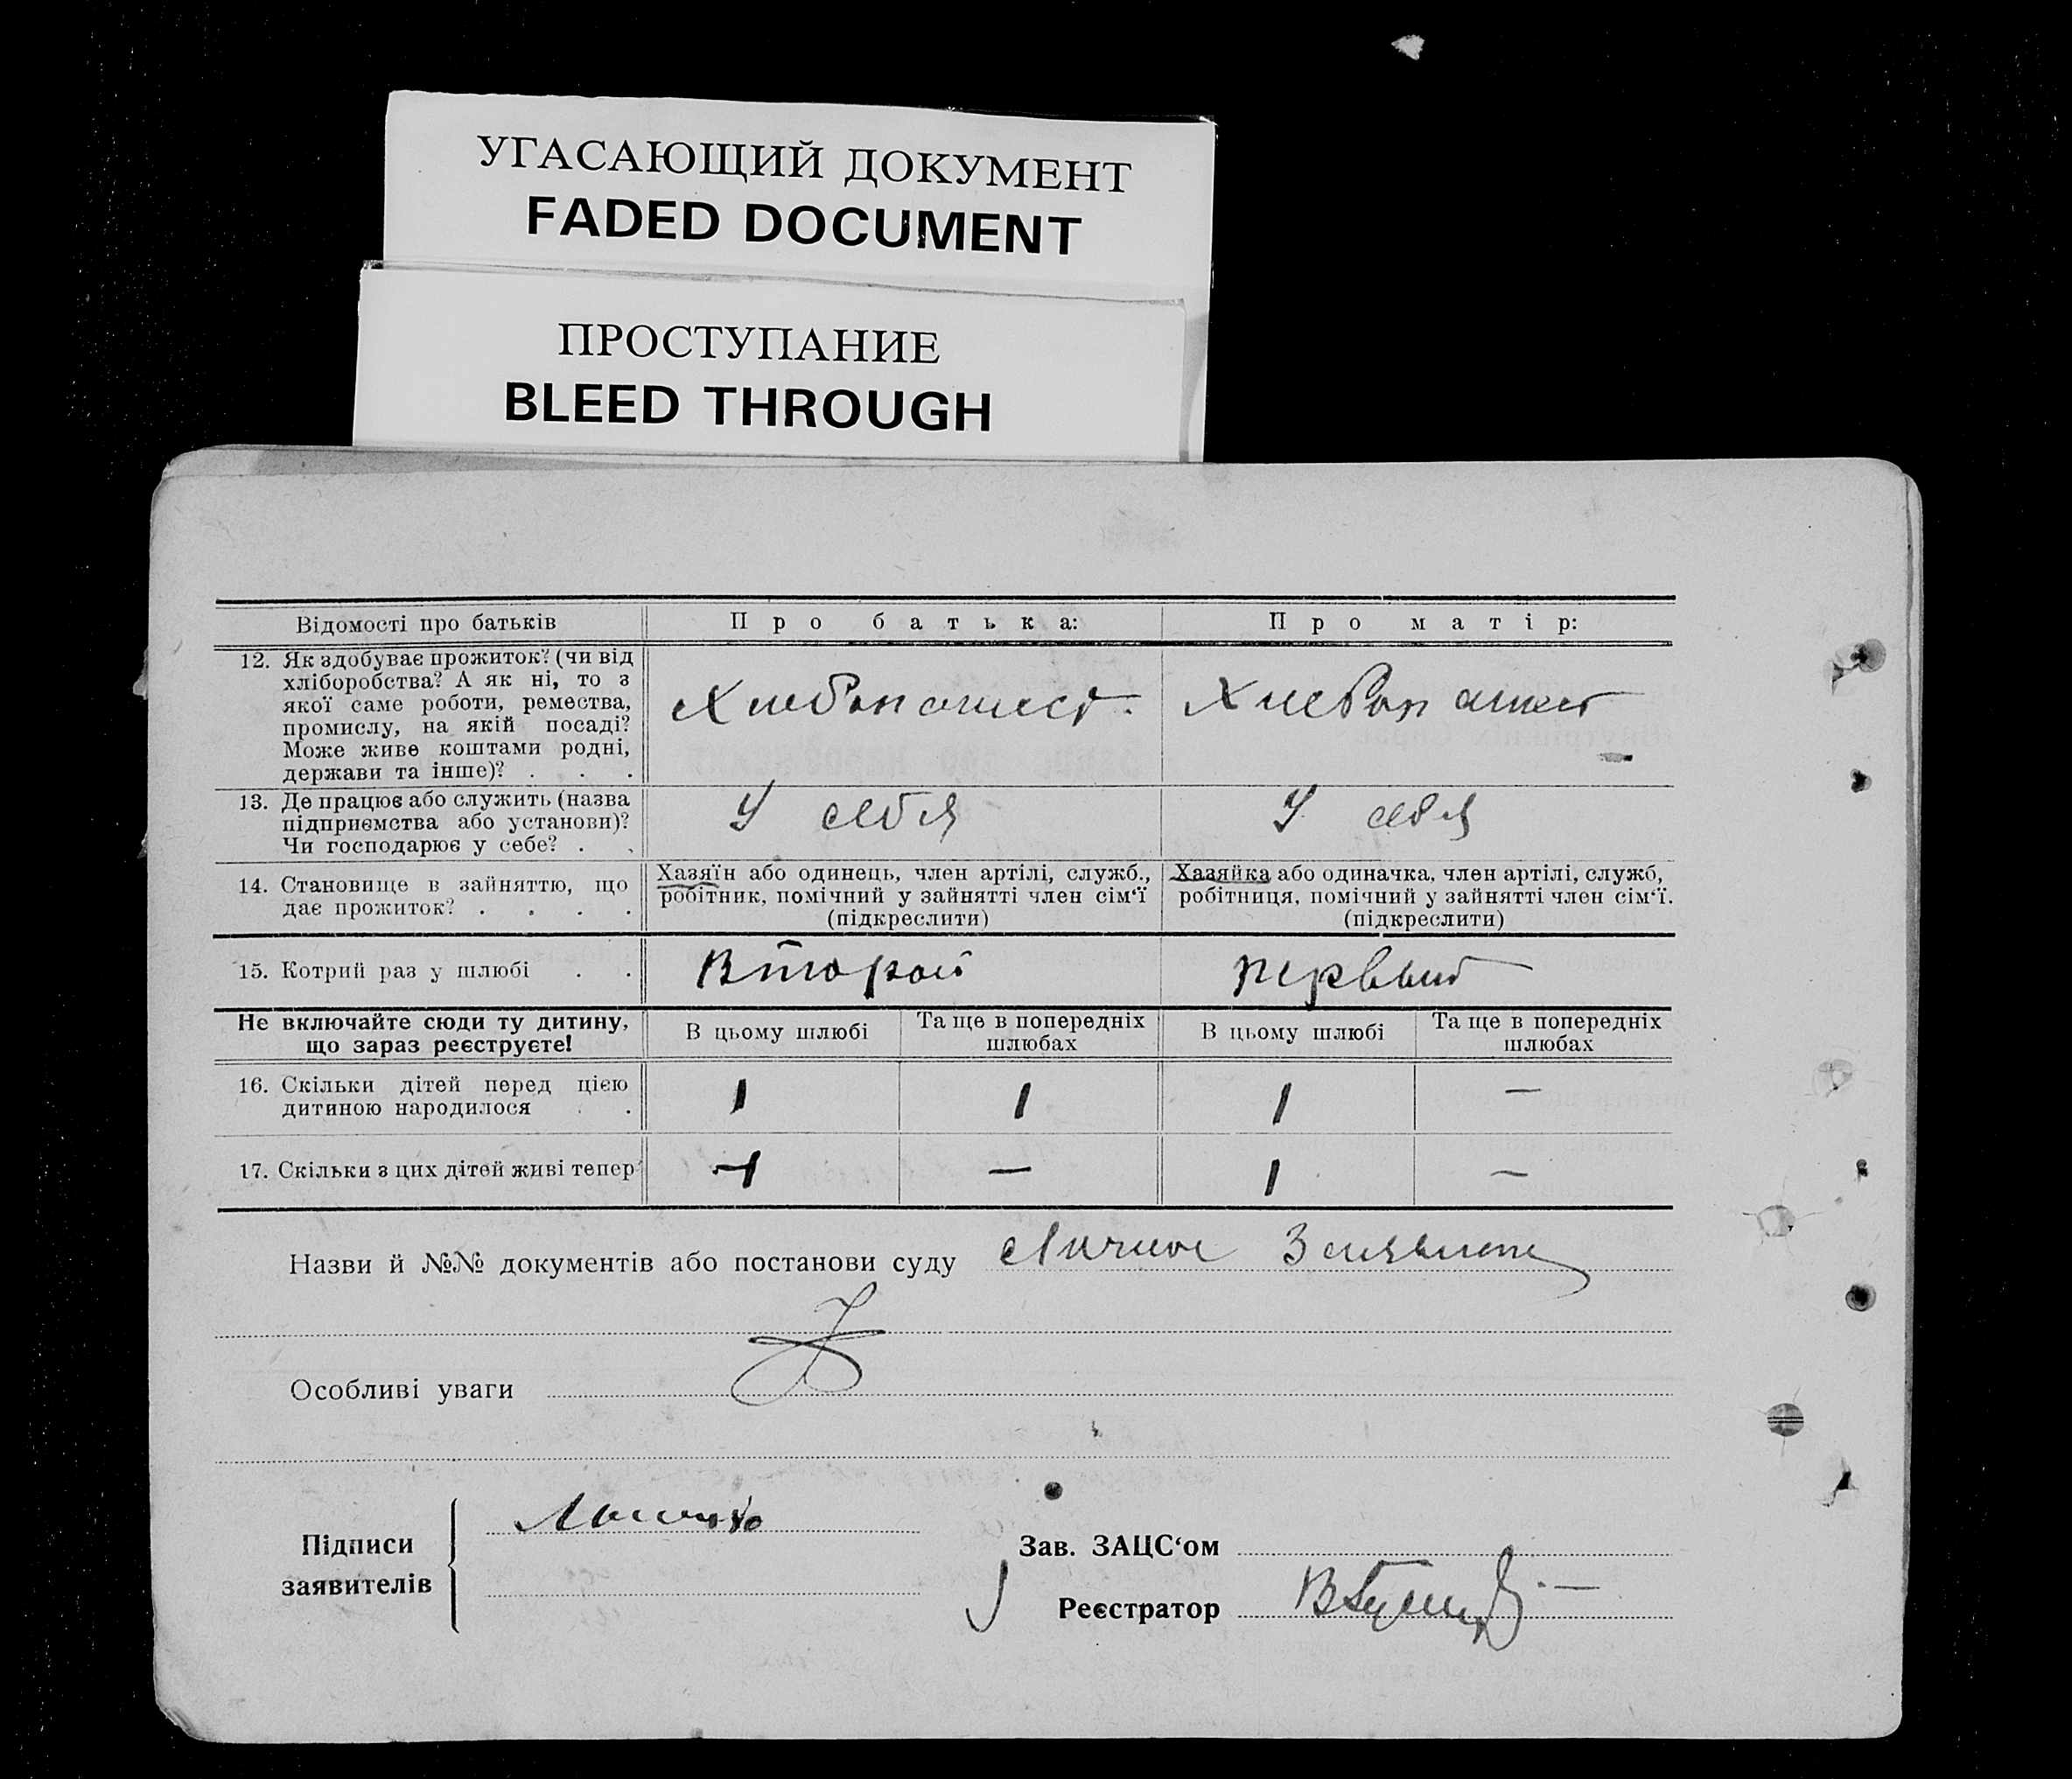 УГАСАЮЩИЙ ДОКУМЕНТ
FADED DOCUMENT
ПРОСТУПАНИЕ
BLEED THROUGH
Відомості про батьків
Про батька:
Про матір:
12. Як здобуває прожиток? (чи від
хліборобства? А як ні, то з
якої саме роботи, ремества,
промислу, на якій посаді?
Може живе коштами родні,
держави та інше)? . . .
Хлебопашест.
Хлебопашест
13. Де працює або служить (назва
підприємства або установи)?
Чи господарює у себе? . .
У себя
У себя
14. Становище в зайняттю, що
дає прожиток? . . . .
Хазяїн або одинець, член артілі, служб.,
робітник, помічний у зайнятті член сім‘ї
(підкреслити)
Хазяйка або одиначка, член артілі, служб,
робітниця, помічний у зайнятті член сім‘ї.
(підкреслити)
15. Котрий раз у шлюбі . .
Второй
первый
Не включайте сюди ту дитину,
що зараз реєструєте!
В цьому шлюбі
Та ще в попередніх
шлюбах
В цьому шлюбі
Та ще в попередніх
шлюбах
16. Скільки дітей перед цією
дитиною народилося . .
1
1
1
—
17. Скільки з цих дітей живі тепер
1
—
1
—
Назви й №№ документів або постанови суду Личное
Особливі уваги
Підписи
заявителів
Зав. ЗАЦС‘ом
Реєстратор